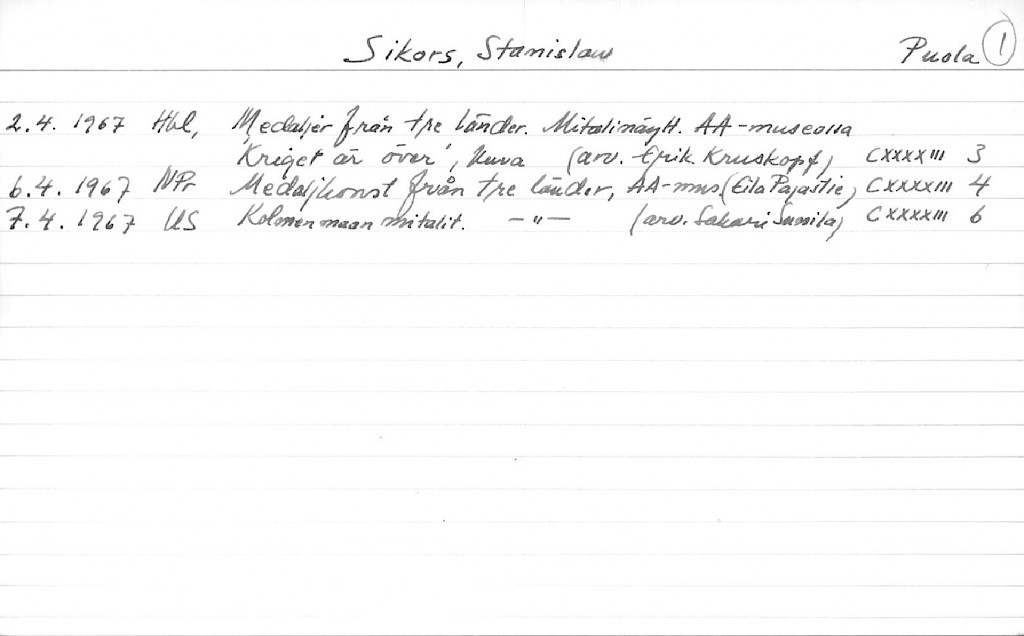 Sikors, Stanislaw Puola 1
2.4. 1967 Hbl, Medaljer från tre länder. Mitalinäytt. AA-museossa
'Kriget är över', kuva (arv. Erik. Kruskopf) CXXXXIII 3
6.4. 1967 NPr Medaljkonst från tre länder, AA-mus (Eila Pajastie) CXXXXIII 4
7.4. 1967 US Kolmen maan mitalit. —"— (arv. Sakari Sunila) CXXXXIII 6